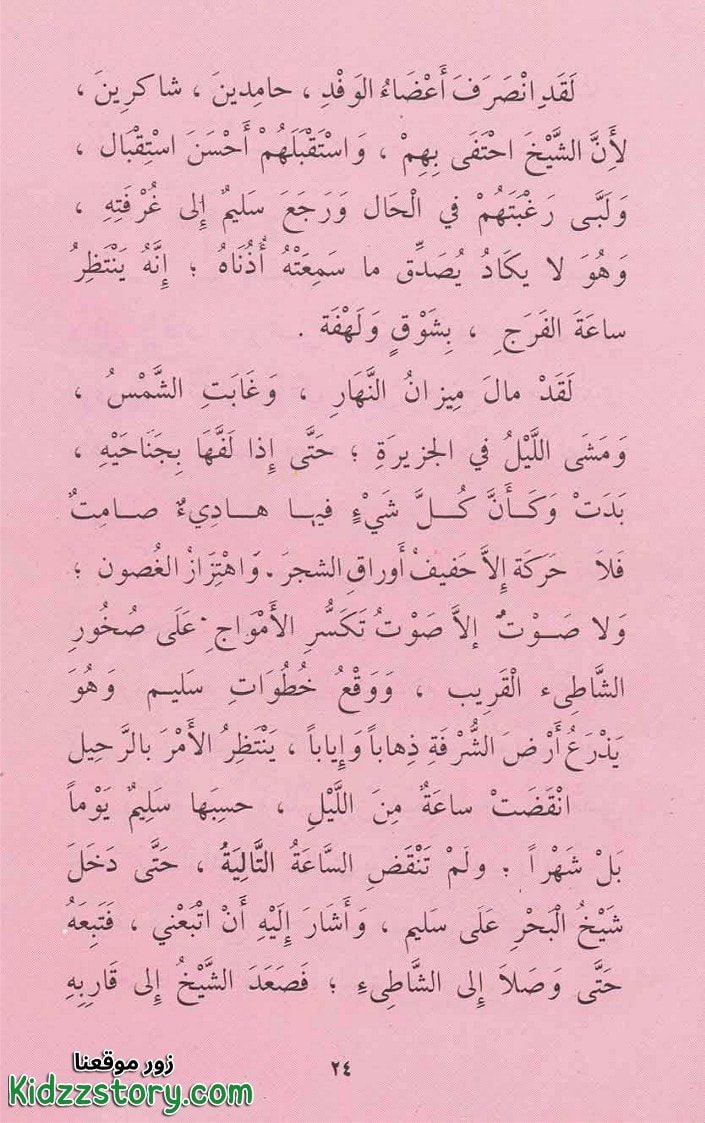 لَقَدِ انْصَرَفَ أَعْضَاءُ الوَفْدِ ، حامِدينَ ، شاكرِينَ ،
لأَنَّ الشَّيْخَ احْتَفَى بِهِمْ ، وَاسْتَقْبَلَهُمْ أَحْسَنَ اسْتِقْبَال ،
وَلَبَّى رَغْبَتَهُمْ في الْحَال وَرَجَعَ سَليمٌ إِلى غُرْفَتِهِ ،
وَهُوَ لا يكَادُ يُصَدِّق ما سَمِعَتْهُ أُذُنَاهُ ؛ إِنَّهُ يَنْتَظِرُ
ساعَةَ الفَرَجِ ، بِشَوْقٍ وَلَهْفَة .
لَقَدْ مالَ مِيزانُ النَّهَارِ ، وَغَابَتِ الشَّمْسُ ،
وَمَشَى اللَّيْلُ في الجزيرَةِ ؛ حَتَّى إِذا لَفَّهَا بِجَنَاحَيْهِ ،
بَدَتْ وَكَأَنَّ كُلَّ شَيْءٍ فيها هادِيءٌ صامِتٌ
فَلاَ حَرَكَة إِلاَّ حَفيفُ أَوراقِ الشجرَ . وَاهْتِزازُ الغُصون ؛
وَلا صَوْتٌ إلاَّ صَوْتُ تَكَسُّرِ الأَمْوَاجِ عَلَى صُخُورِ
الشَّاطِىء الْقَرِيب ، وَوَقْعُ خُطُوَاتِ سَليم وَهُوَ
يَذْرَعُ أَرْضَ الشُّرْفَةِ ذِهاباً وَإِياباً ، يَنْتَظِرُ الأَمْرَ بالرَّحيل
انْقَضَتْ ساعَةٌ مِنَ اللَّيْلِ ، حسِبَها سَلِيمٌ يَوْماً
بَلْ شَهْراً ؛ ولَمْ تَنْقَضِ السَّاعَةُ التَّالِيَةُ ، حَتَّى دَخَلَ
شَيْخُ الْبَحْرِ عَلَى سَليم ، وَأَشَارَ إِلَيْهِ أَنْ اتْبَعْني ، فَتَبِعَهُ
حَتَّى وَصَلاَ إِلى الشَّاطِىءِ ؛ فَصَعَدَ الشَّيْخُ إِلى قَارِبِهِ
٢٤
زور موقعنا
Kidzzstory.com